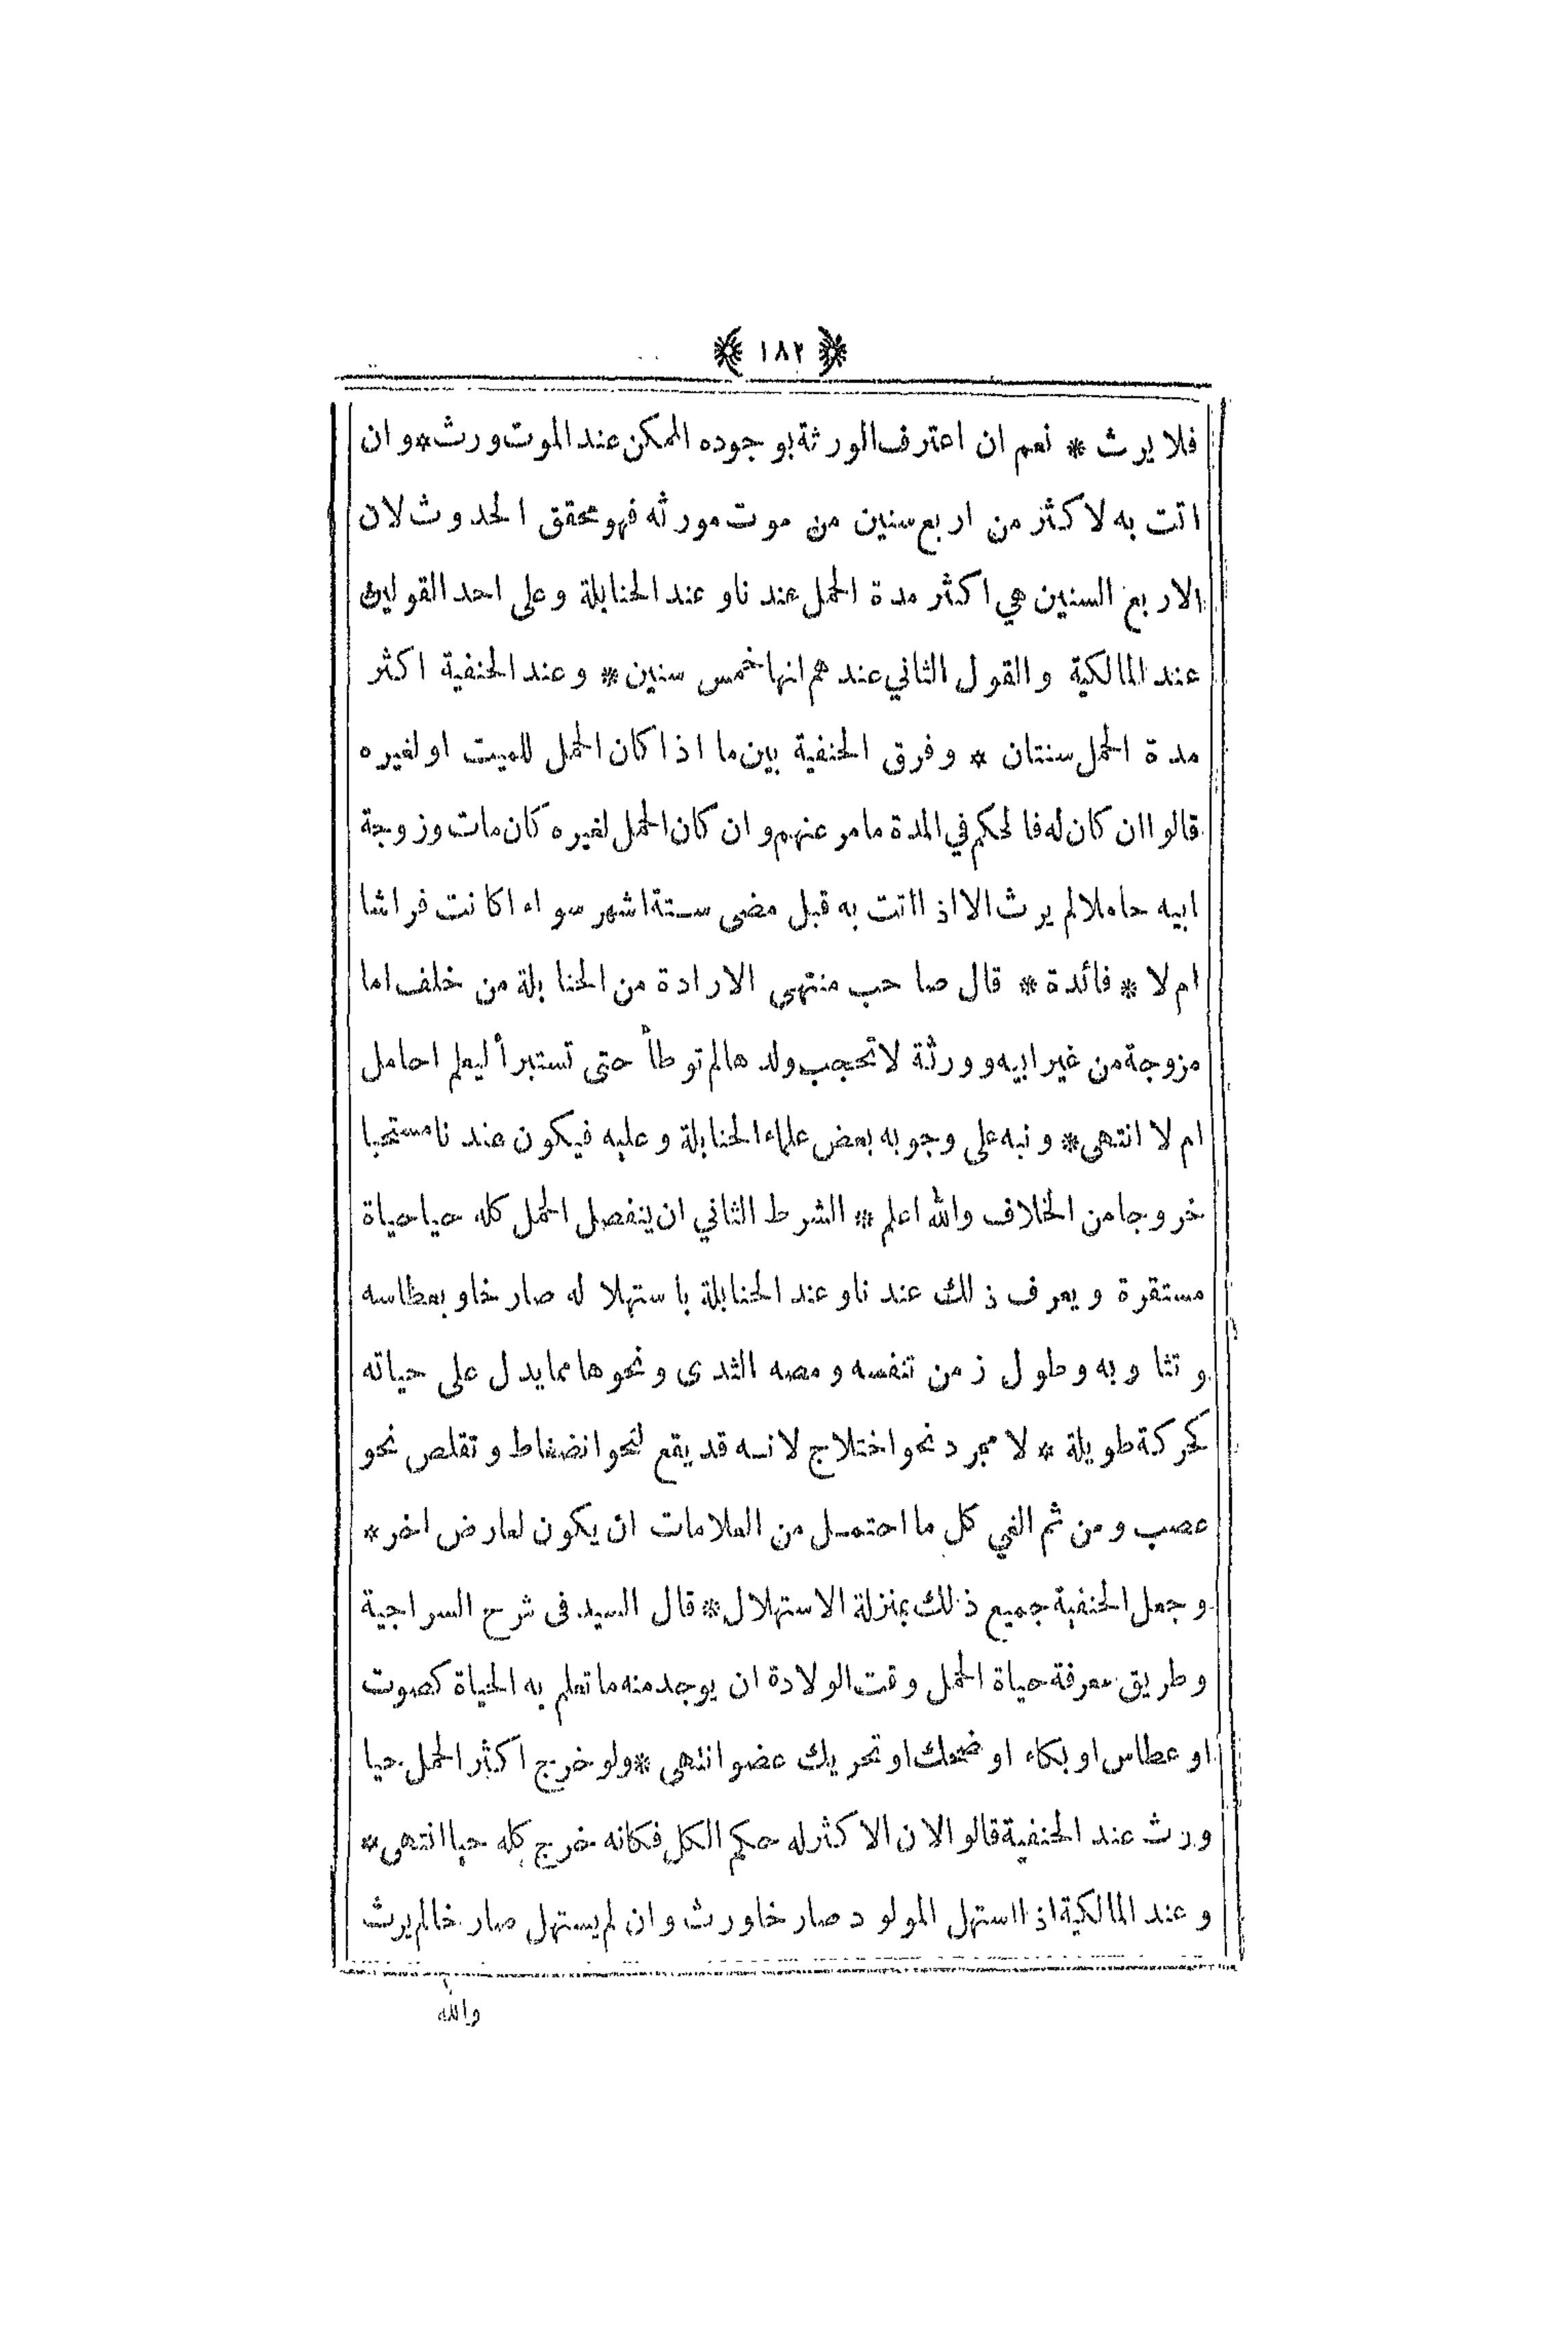 ﴿ ١٨٢ ﴾
فلا يرث * نعم ان اعترف الورثة بوجوده الممكن عند الموت ورث * وان
اتت به لاكثر من اربع سنين من موت مورثه فهو محقق الحدوث لان
الاربع السنين هي اكثر مدة الحمل عندنا وعند الحنابلة وعلى احد القولين
عند المالكية والقول الثاني عندهم انها خمس سنين * وعند الحنفية اكثر
مدة الحمل سنتان * وفرق الحنفية بين ما اذا كان الحمل للميت او لغيره
قالوا ان كان له فالحكم في المدة ما مر عنهم وان كان الحمل لغيره كان مات وزوجة
ابيه حاملا لم يرث الا اذا اتت به قبل مضى ستة اشهر سواء اكانت فراشا
ام لا * فائدة * قال صاحب منتهى الارادة من الحنابلة من خلف اما
مزوجة من غير ابيه وورثة لا تحجب ولدها لم توطأ حتى تستبرأ ليعلم احامل
ام لا انتهى * ونبه على وجوبه بعض علماء الحنابلة وعليه فيكون عندنا مستحبا
خروجا من الخلاف والله اعلم * الشرط الثاني ان ينفصل الحمل كله حيا حياة
مستقرة ويعرف ذلك عندنا وعند الحنابلة باستهلاله صارخا وبعطاسه
وتثاوبه وطول زمن تنفسه ومصه الثدى ونحوها مما يدل على حياته
كحركة طويلة * لا مجرد نحو اختلاج لانه قد يقع لنحو انضغاط وتقلص نحو
عصب ومن ثم الغي كل ما احتمل من العلامات ان يكون لعارض اخر *
وجعل الحنفية جميع ذلك بمنزلة الاستهلال * قال السيد في شرح السراجية
وطريق معرفة حياة الحمل وقت الولادة ان يوجد منه ما تعلم به الحياة كصوت
او عطاس او بكاء او ضحك او تحريك عضو انتهى * ولو خرج اكثر الحمل حيا
ورث عند الحنفية قالوا لان الاكثر له حكم الكل فكانه خرج كله حيا انتهى *
وعند المالكية اذا استهل المولود صارخا ورث وان لم يستهل صارخا لم يرث
والله